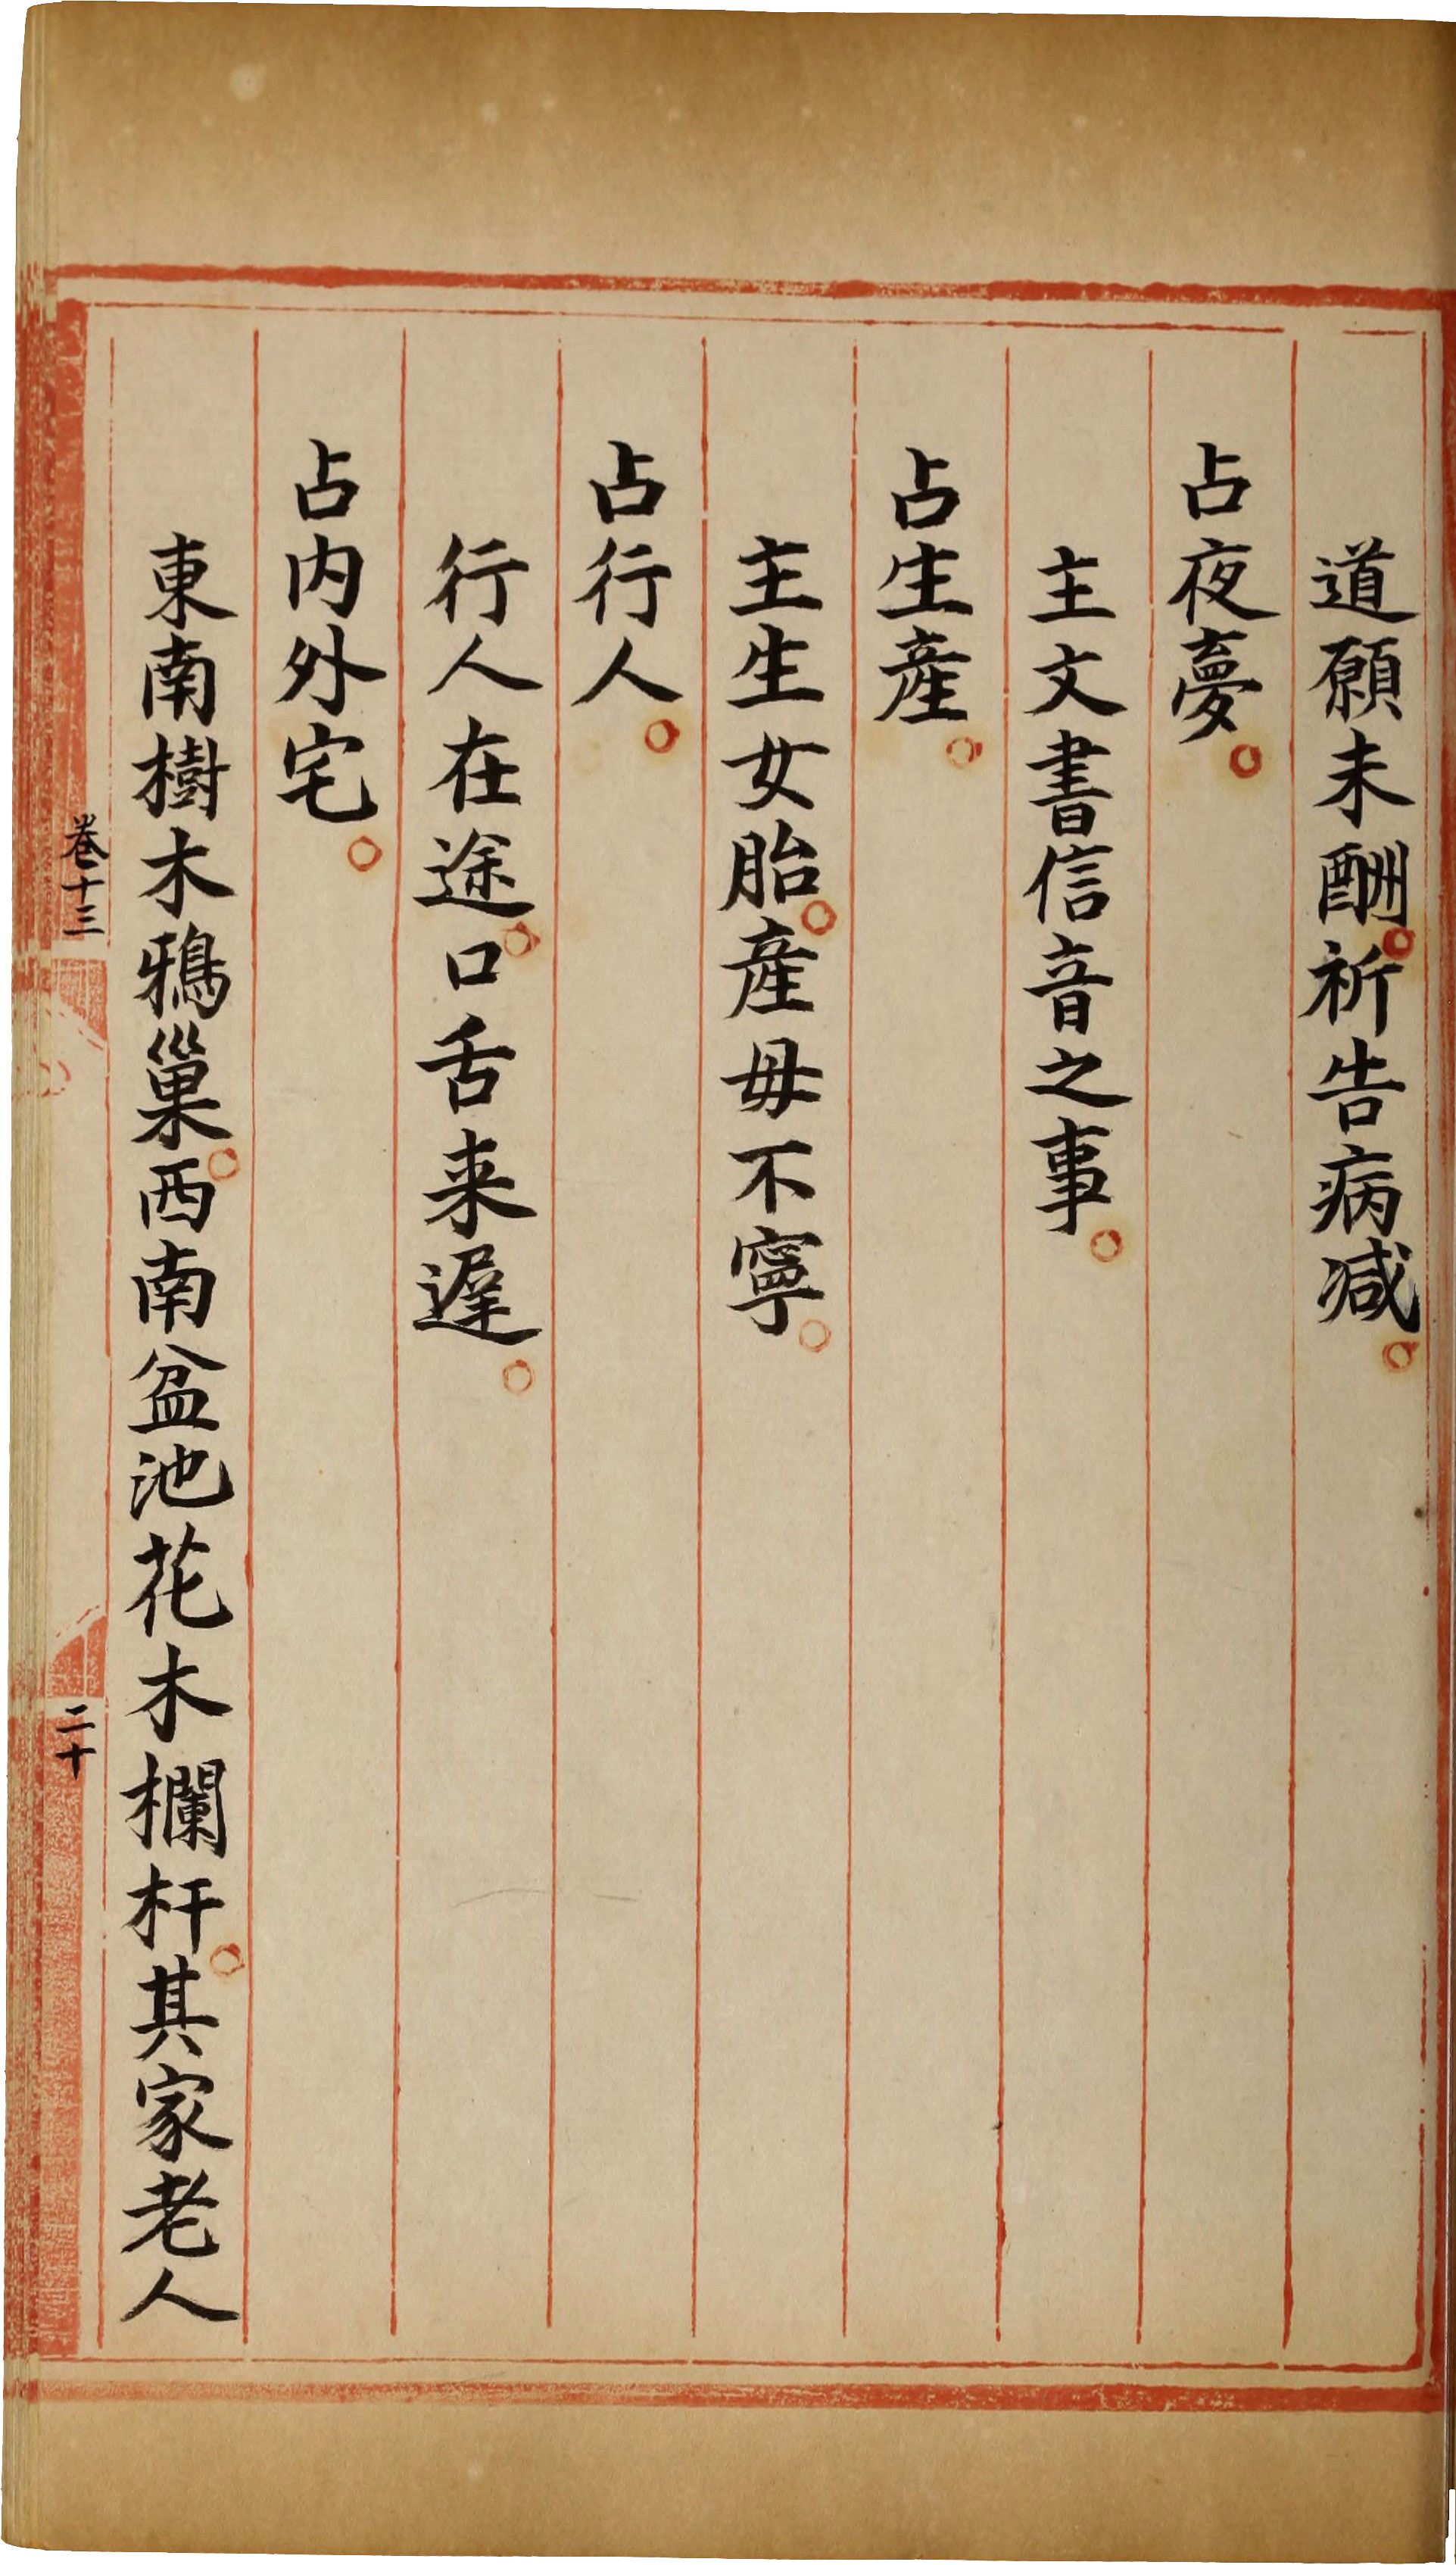 道願未酬。祈告病减。
占夜夢。
主文書信音之事。
占生產。
主生女胎。產母不寧。
占行人。
行人在途。口舌来遲。
占内外宅。
東南樹木鴉巢。西南盆池花木欄杆。其家老人
卷十三
二十